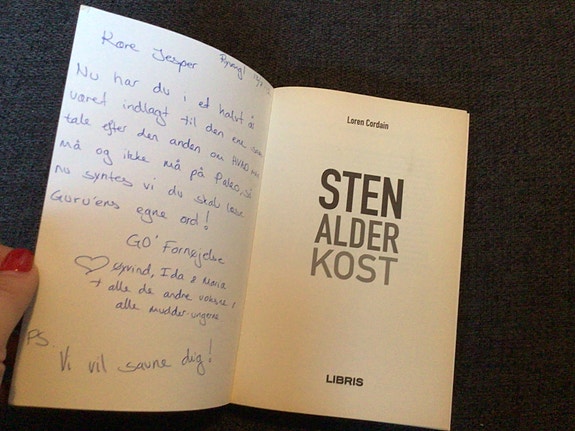 Kære Jesper
Nu har du i et halvt år
været indlagt til den ene
tale efter den anden om HVAD man
må og ikke må på Paleo, så
nu syntes vi du skal læse
Guru'ens egne ord!
GO' Fornøjelse
Øyvind, Ida & Maria
+ alle de andre voksne &
alle mudder-ungerne
PS.
Vi vil savne dig!
Loren Cordain
STEN
ALDER
KOST
LIBRIS